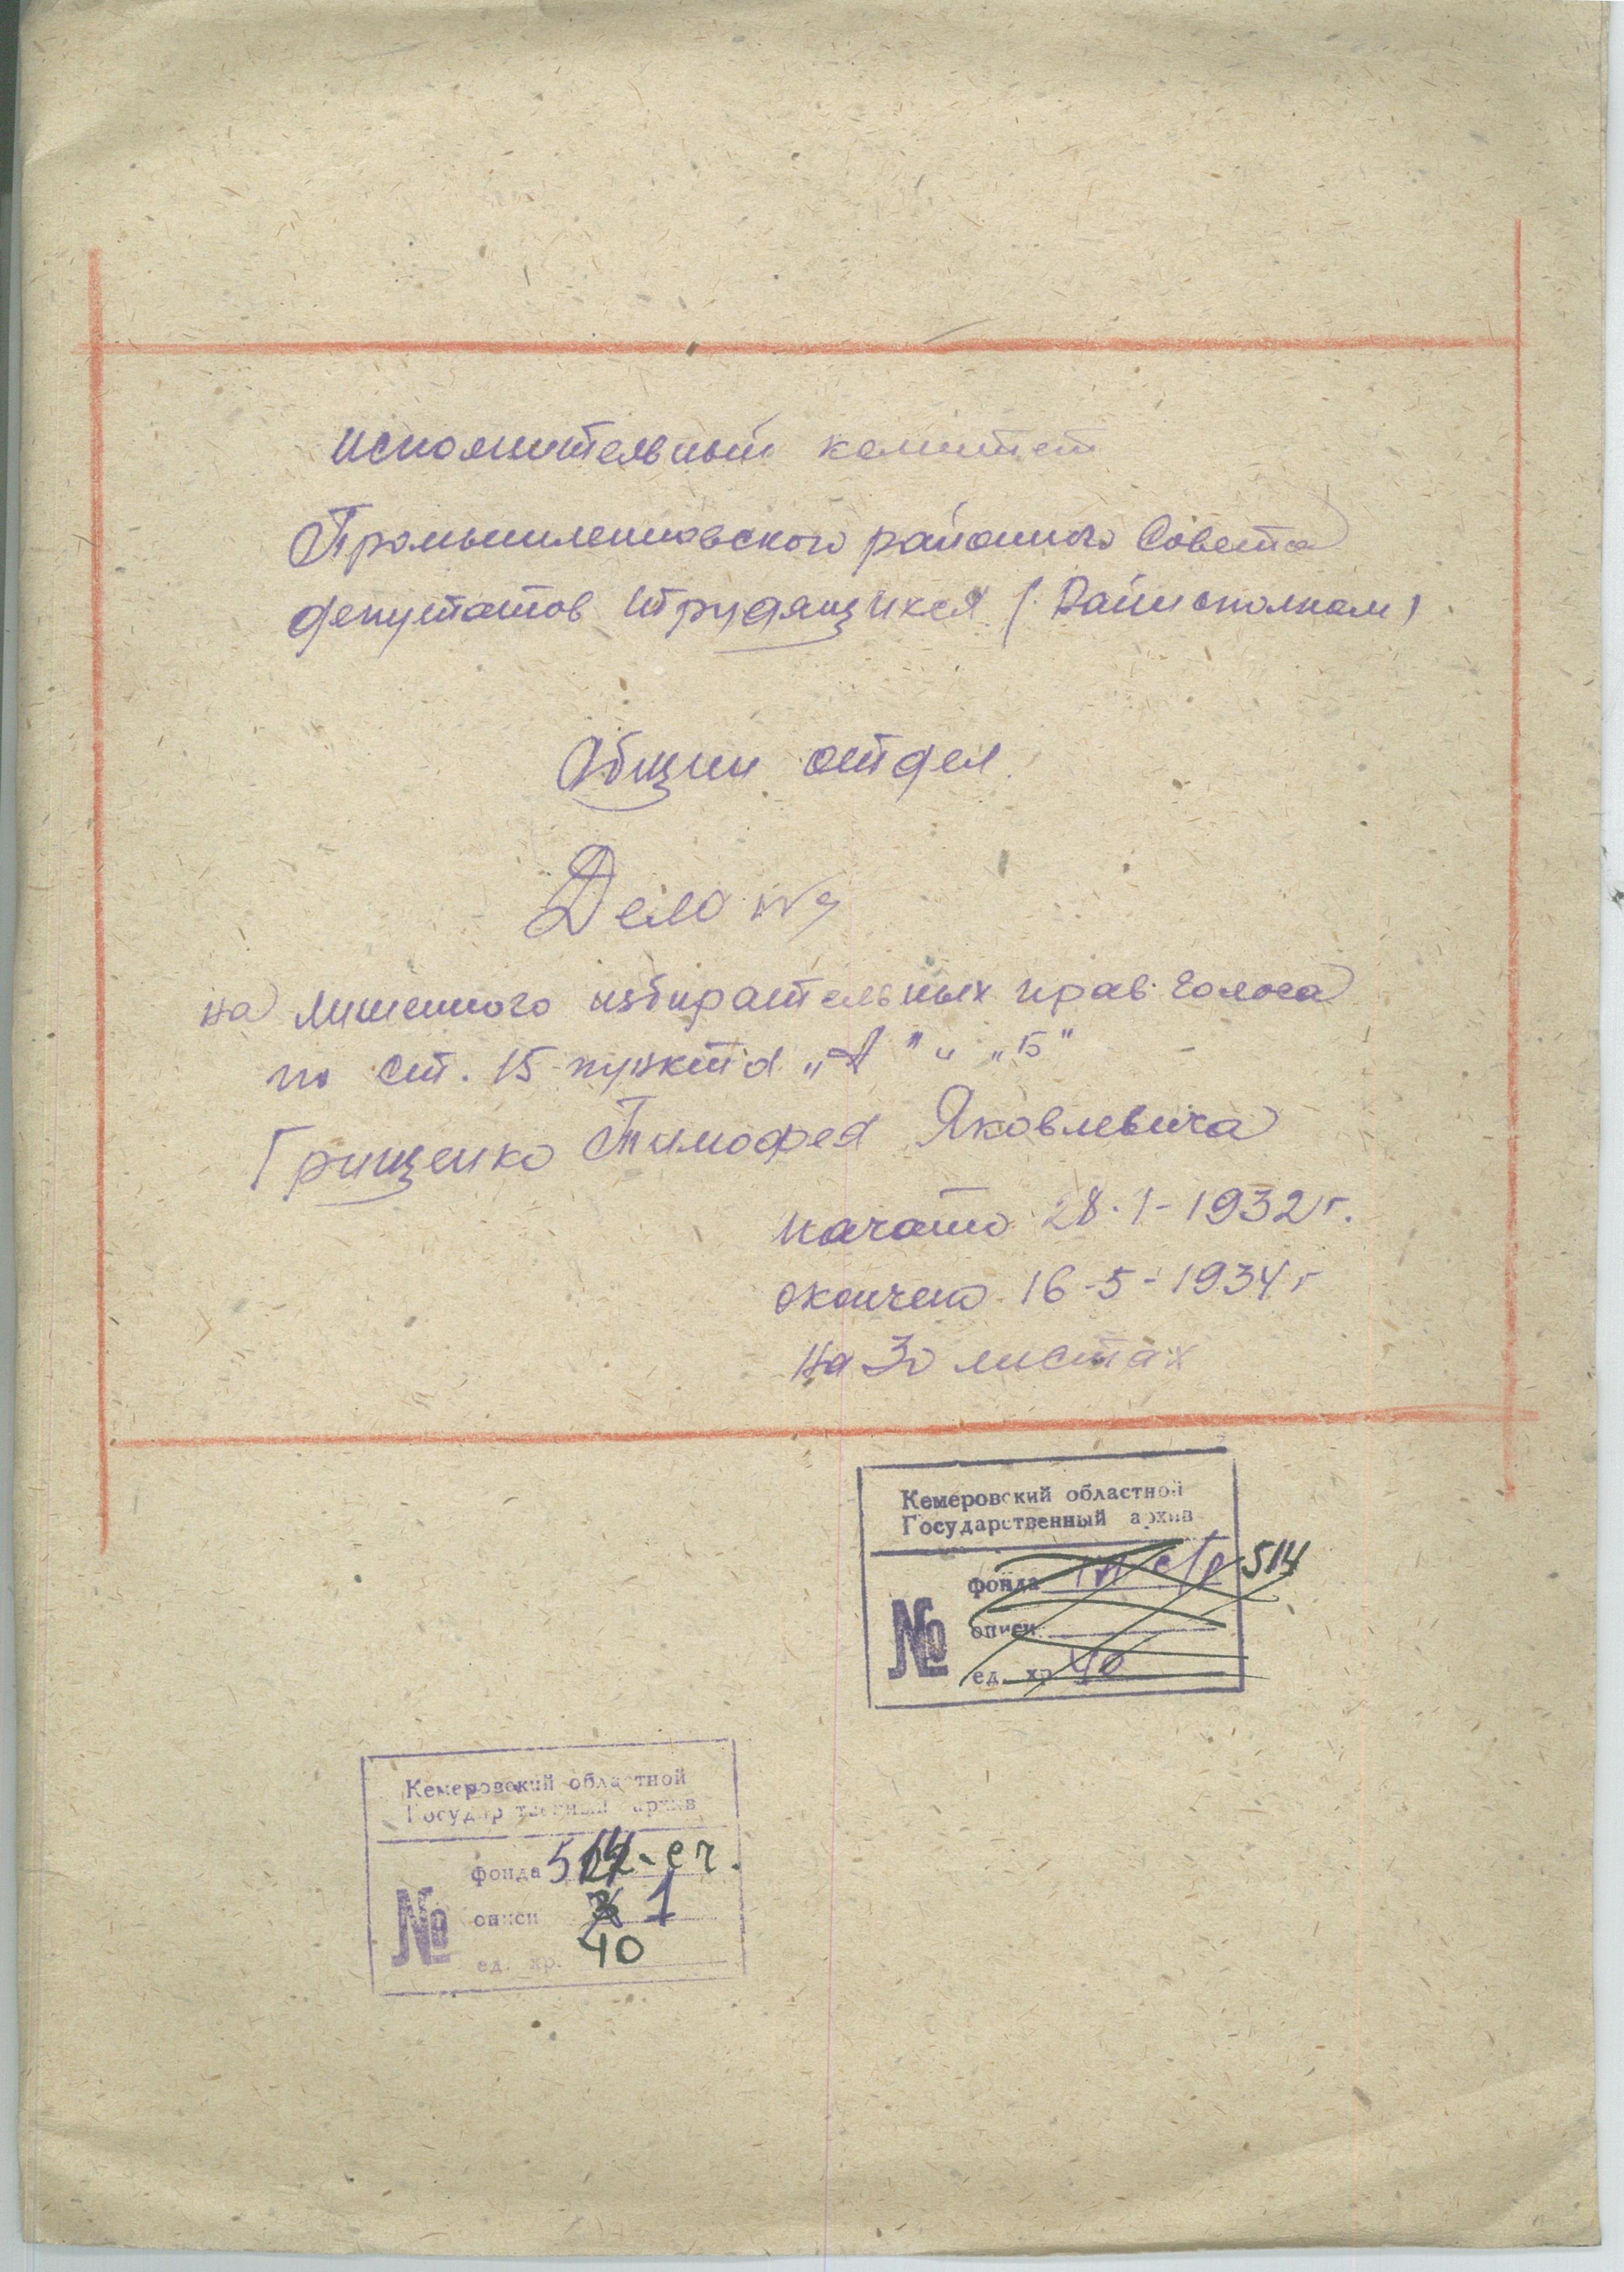 исполнительный комитет
Промышленновского районного Совета
депутатов трудящихся (Райисполком)
Общий отдел
Дело №
на лишенного избирательных прав голоса
по ст. 15 пункта „А" и „Б"
Грищенко Тимофея Яковлевича
начато 28-1-1932 г.
окончено 16-5-1934 г
на 30 листах
Кемеровский областной
Государственный архив
фонда 514
№ описи
ед. хр. 40
Кемеровский областной
Государственный архив
фонда 514
№ описи 1
ед. хр. 40